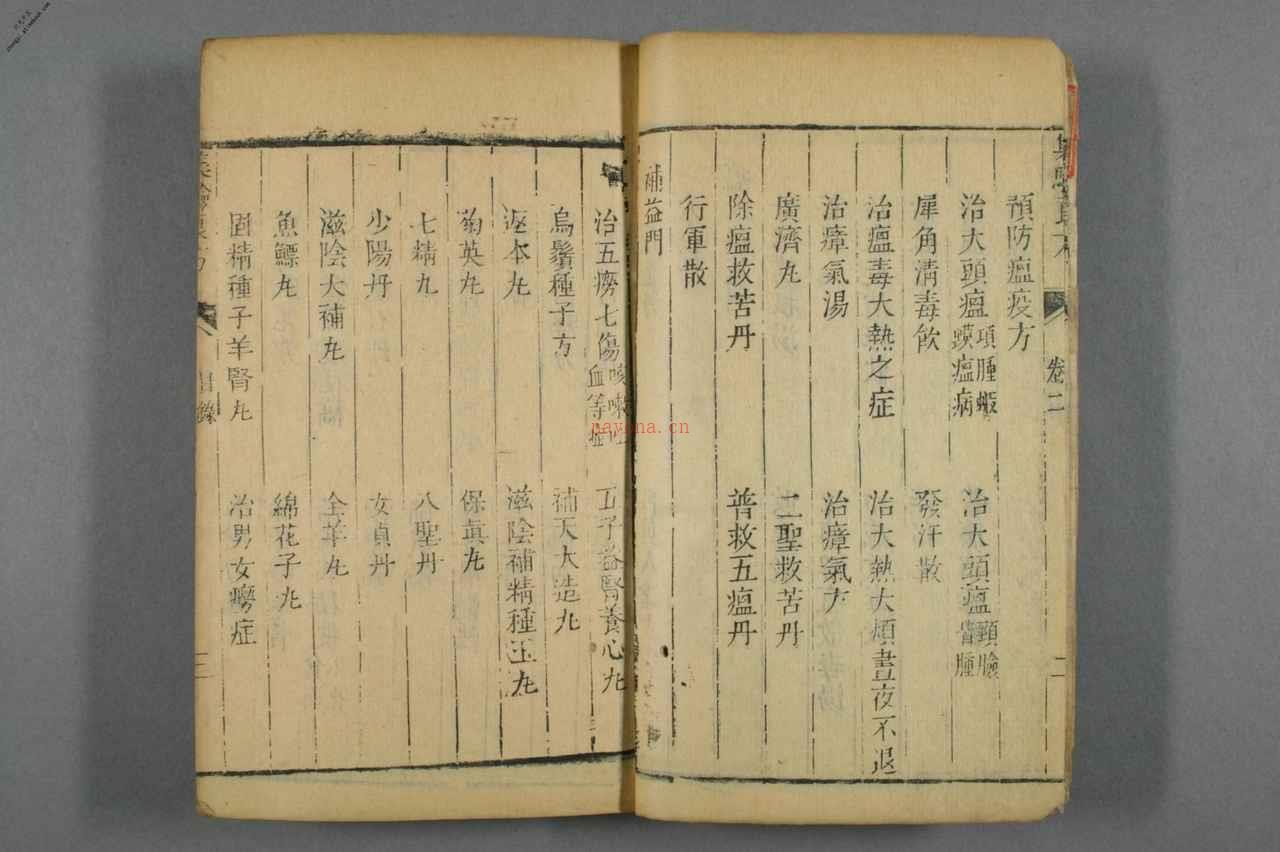 集驗良方 卷二 二
預防瘟疫方
治大頭瘟項腫蝦蟆瘟病 治大頭瘟頸臉皆腫
犀角清毒飲 發汗散
治瘟毒大熱之症 治大熱大煩晝夜不退
治瘴氣湯 治瘴氣方
廣濟丸 二聖救苦丹
除瘟救苦丹 普救五瘟丹
行軍散
補益門
治五癆七傷咳嗽吐血等症 五子益腎養心丸
烏鬚種子方 補天大造丸
返本丸 滋陰補精種玉丸
菊英丸 保真丸
七精丸 八聖丹
少陽丹 女貞丹
滋陰大補丸 全羊丸
魚鰾丸 綿花子丸
固精種子羊腎丸 治男女癆症
集驗良方 目錄 三
nayona.cn